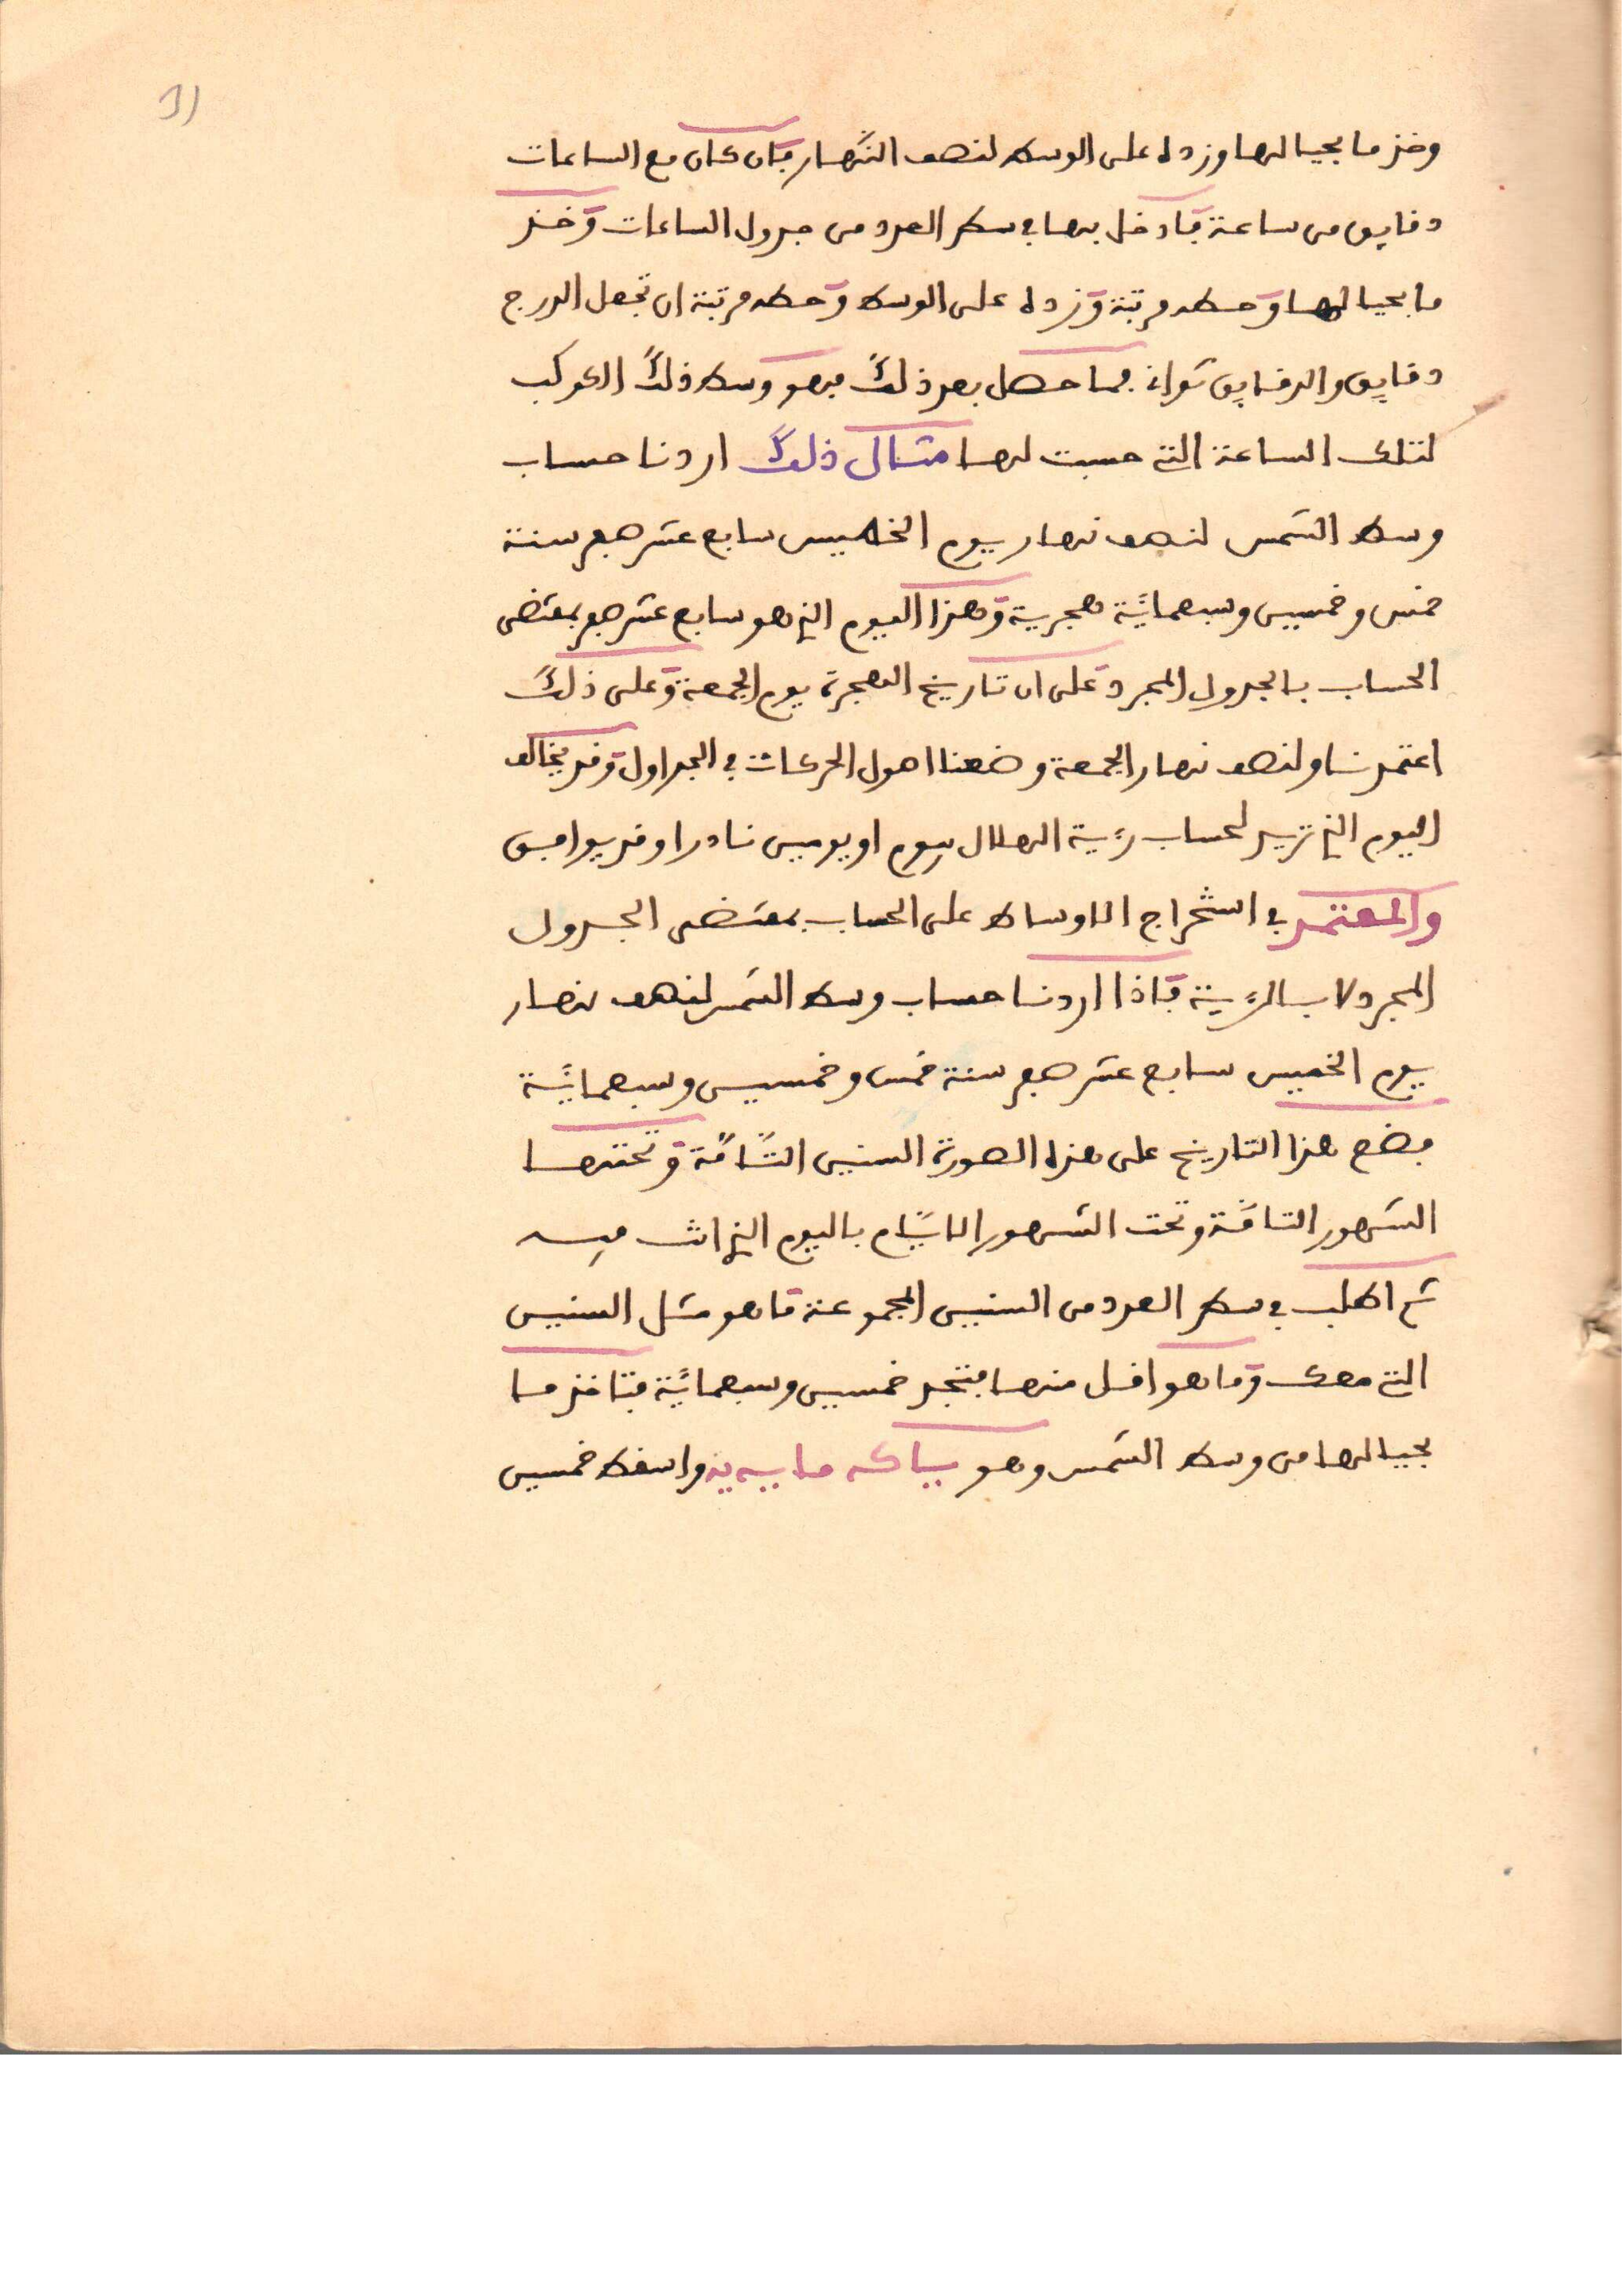 11
وخذ ما بحيالها وزده على الوسط لنصف النهار فان كان مع الساعات
دقايق من ساعة فادخل بها في سطر العدد من جدول الساعات وخذ
ما بحيالها وحطه مرتبة وزده على الوسط وحطه مرتبة ان تجعل الدرج
دقايق والدقايق ثواني فما حصل بعد ذلك فهو وسط ذلك الكوكب
لتلك الساعة التي حسبت لها مثال ذلك اردنا حساب
وسط الشمس لنصف نهار يوم الخميس سابع عشر صفر سنة
خمس وخمسين وسبعمائة هجرية وهذا اليوم الذي هو سابع عشر صفر بمقتضى
الحساب بالجدول المجرد على ان تاريخ الهجرة يوم الجمعة وعلى ذلك
اعتمدنا ولنصف نهار الجمعة وضعنا اصول الحركات في الجداول وقد يخالف
اليوم الذي تريد لحساب رءية الهلال بيوم او يومين نادرا وقد يوافق
والمعتمد في استخراج الاوساط على الحساب بمقتضى الجدول
المجرد لا بالرءية فاذا اردنا حساب وسط الشمس لنصف نهار
يوم الخميس سابع عشر صفر سنة خمس وخمسين وسبعمائة
فضع هذا التاريخ على هذه الصورة السنين التامة وتحتها
الشهور التامة وتحت الشهور الايام باليوم الذي انت فيه
ثم اطلب في سطر العدد من السنين المجموعة ما هو مثل السنين
التي معك وما هو اقل منها فتجد خمسين وسبعمائة فتاخذ ما
بحيالها من وسط الشمس وهو واسقط خمسين